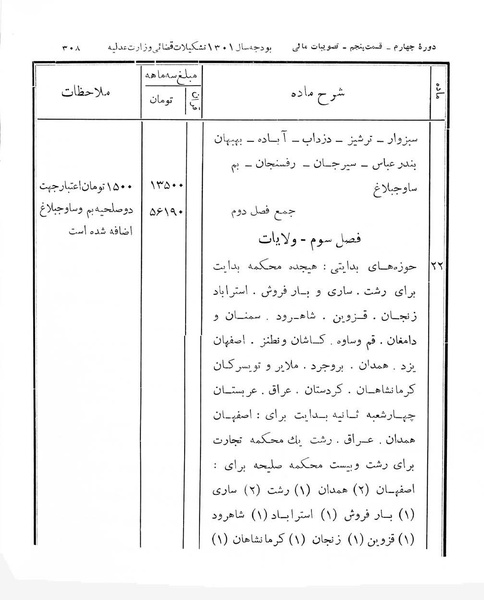 دورهٔ چهارم - قسمت پنجم - تصویبات مالی بودجه سال ۱۳۰۱ تشکیلات قضائی وزارت عدلیه ۳۰۸
ماده شرح ماده مبلغ سه ماهه ملاحظات
قران تومان
سبزوار - ترشیز - دزداب - آباده - بهبهان
بندر عباس - سیرجان - رفسنجان - بم
ساوجبلاغ ۱۳۵۰۰ ۱۵۰۰ تومان اعتبار جهت
جمع فصل دوم ۵۶۱۹۰ دو صلحیه بم و ساوجبلاغ
اضافه شده است
فصل سوم - ولایات
۲۲ حوزه‌های بدایتی : هیجده محکمه بدایت
برای رشت . ساری و بار فروش . استراباد
زنجان . قزوین . شاهرود . سمنان و
دامغان . قم وساوه . کاشان ونطنز . اصفهان
یزد . همدان . بروجرد . ملایر و تویسرکان
کرمانشاهان . کردستان . عراق . عربستان
چهارشعبه ثانیه بدایت برای : اصفهان
همدان . عراق . رشت یك محکمه تجارت
برای رشت وبیست محکمه صلحیه برای :
اصفهان (۲) همدان (۱) رشت (۲) ساری
(۱) بار فروش (۱) استراباد (۱) شاهرود
(۱) قزوین (۱) زنجان (۱) کرمانشاهان (۱)